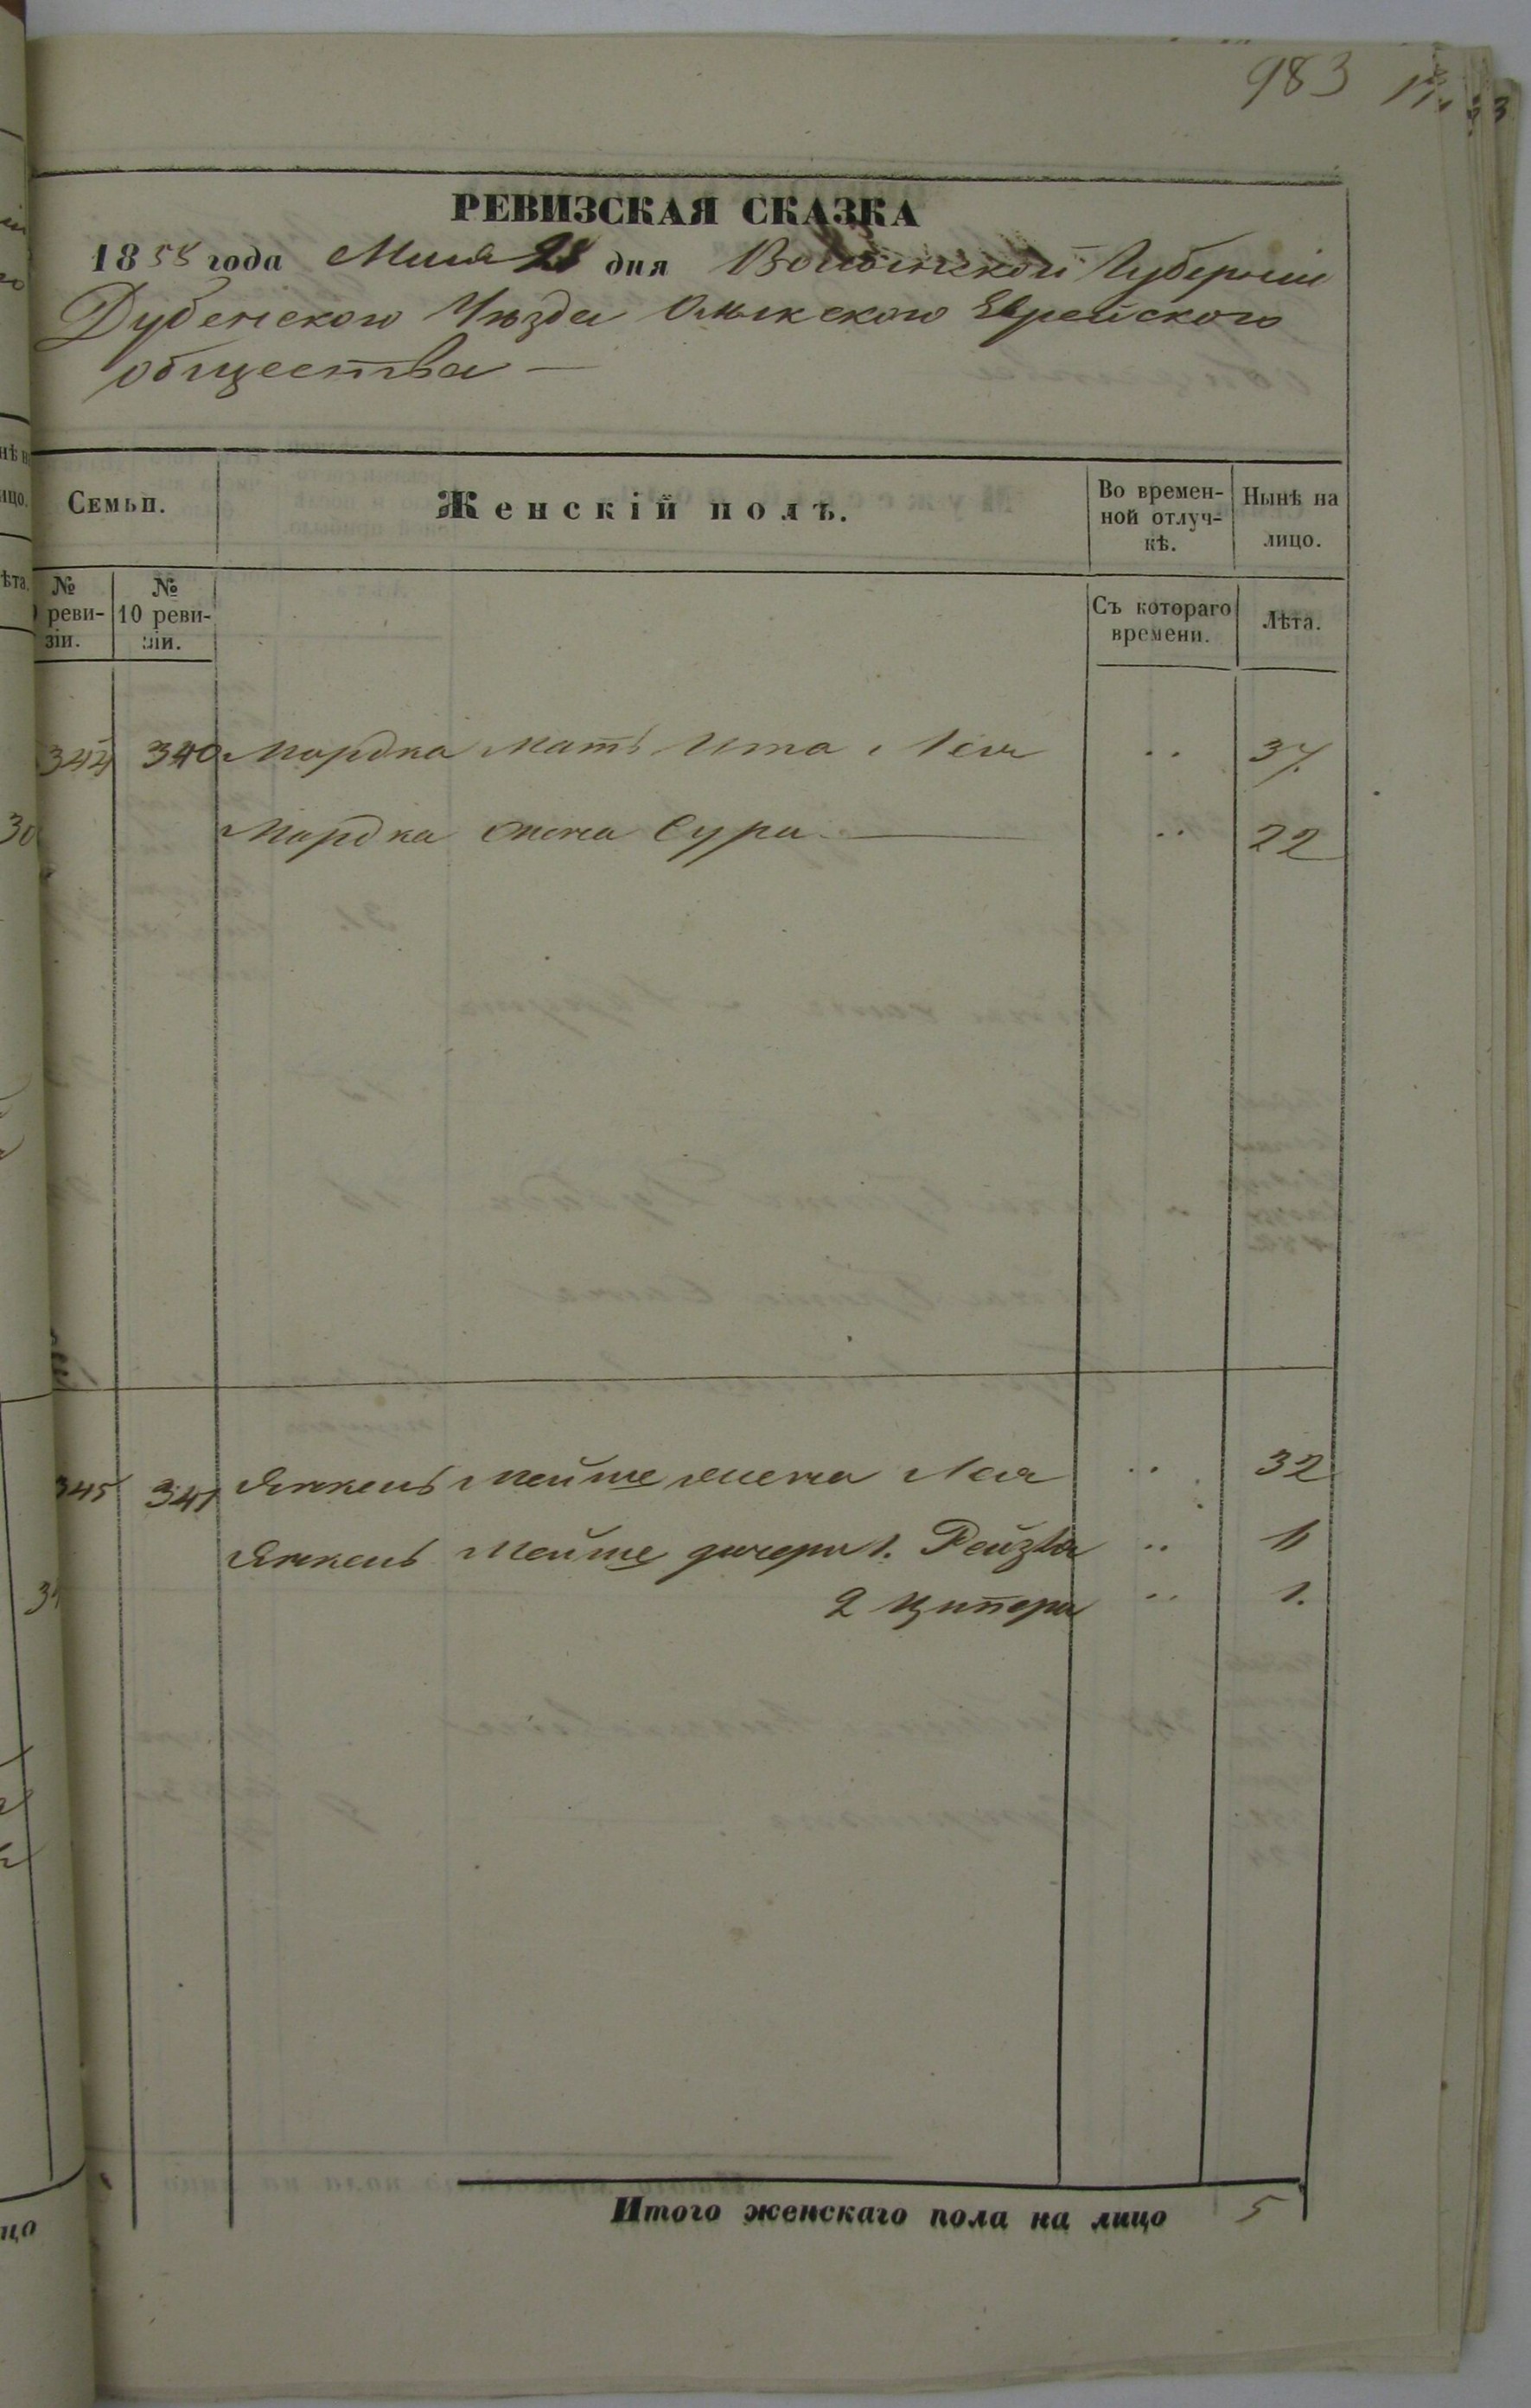 983
РЕВИЗСКАЯ СКАЗКА
1858 года Мая 28 дня Волынской Губернии
Дубенского Уѣзда Олыкского Еврейского
общества —
Семьи.
Женскій полъ.
Во времен-
ной отлуч-
кѣ.
Нынѣ на
лицо.
№
реви-
зіи.
№
10 реви-
зіи.
Съ котораго
времени.
Лѣта.
344 340 Мордка мать Ита Лея .. 37.
Мордка жена Сура .. 22
345 341 Янкель Мейте жена Лея .. 32
Янкель Мейте дочери 1. Рейзля .. 11
2 Ципера .. 1.
Итого женскаго пола на лицо 5